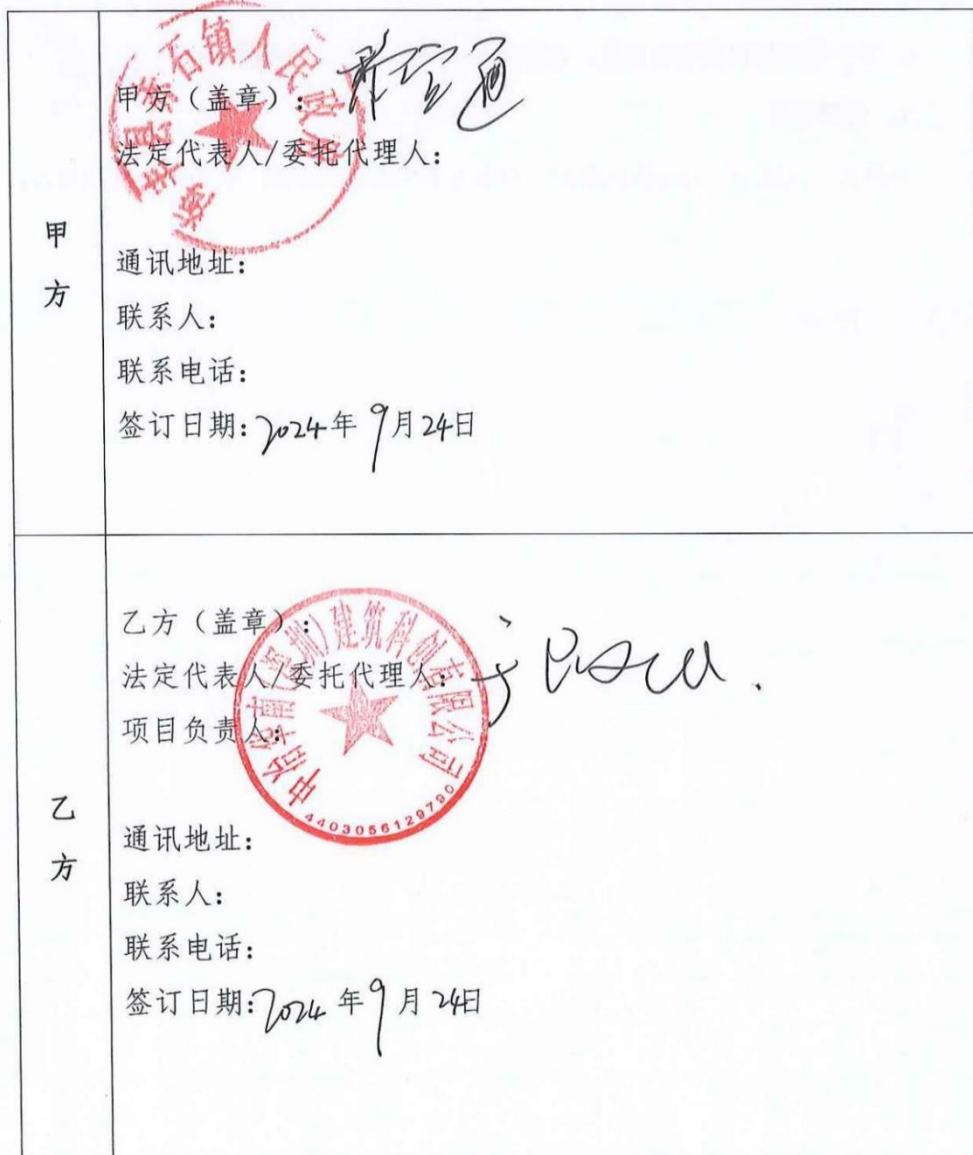 甲方
甲方（盖章）：
法定代表人/委托代理人：
通讯地址：
联系人：
联系电话：
签订日期：2024年9月24日
乙方
乙方（盖章）：
法定代表人/委托代理人：
项目负责人：
通讯地址：
联系人：
联系电话：
签订日期：2024年9月24日
华南（深圳）建筑科创有限公司
4403056129790
石镇人民政府